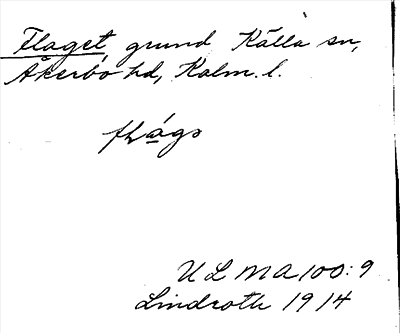 Flaget, grund Källa sn,
Åkerbo hd, Kalm. l.
flágs
ULMA 100:9
Lindroth 1914